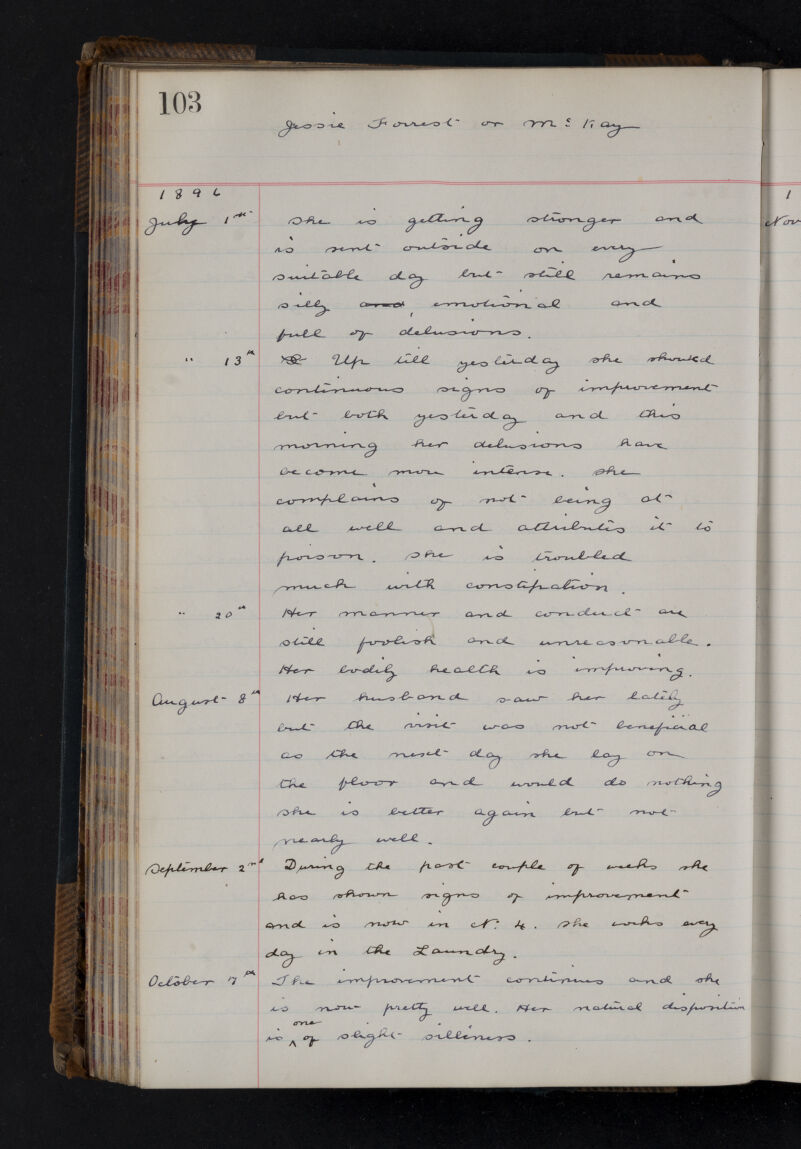 103
Jessie Forrest or McKay
1896
July 1st She is getting stronger and
is sent outside on every
suitable day but still remains
silly and, emotional and
full of delusions.
" 13th Up till yesterday she showed
continuous signs of improvement
but both yesterday and this
morning her delusions have
become more intense. She
complains of not being at
all well and attributes it to
poison. She is troubled
much with constipation.
" 20th Her manner and conduct are
still foolish and unreasonable.
Her bodily health is improving.
August 8th Her husband saw her lately
but the visit was not beneficial
as the next day she lay on
the floor and would do nothing
she is better again but not
nearly well.
September 2nd During the past couple of weeks she
has shown signs of improvement
and is now in N. 4. She works every
day in the Laundry.
October 7th The improvement continues and she
is now pretty well. Her natural disposition
is one of slight silliness.
1
Nov